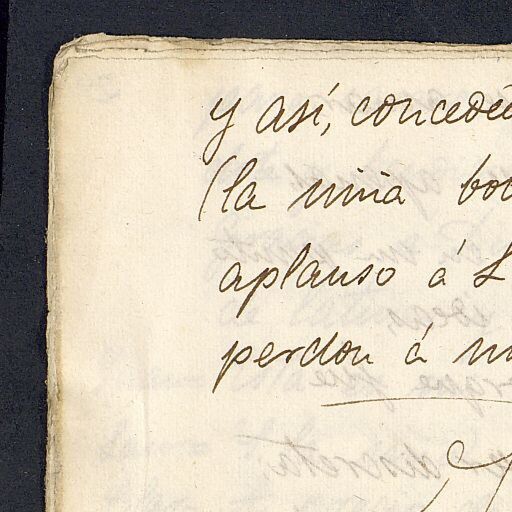 y así, conceded
(la niña bob
aplauso á L
perdon á m